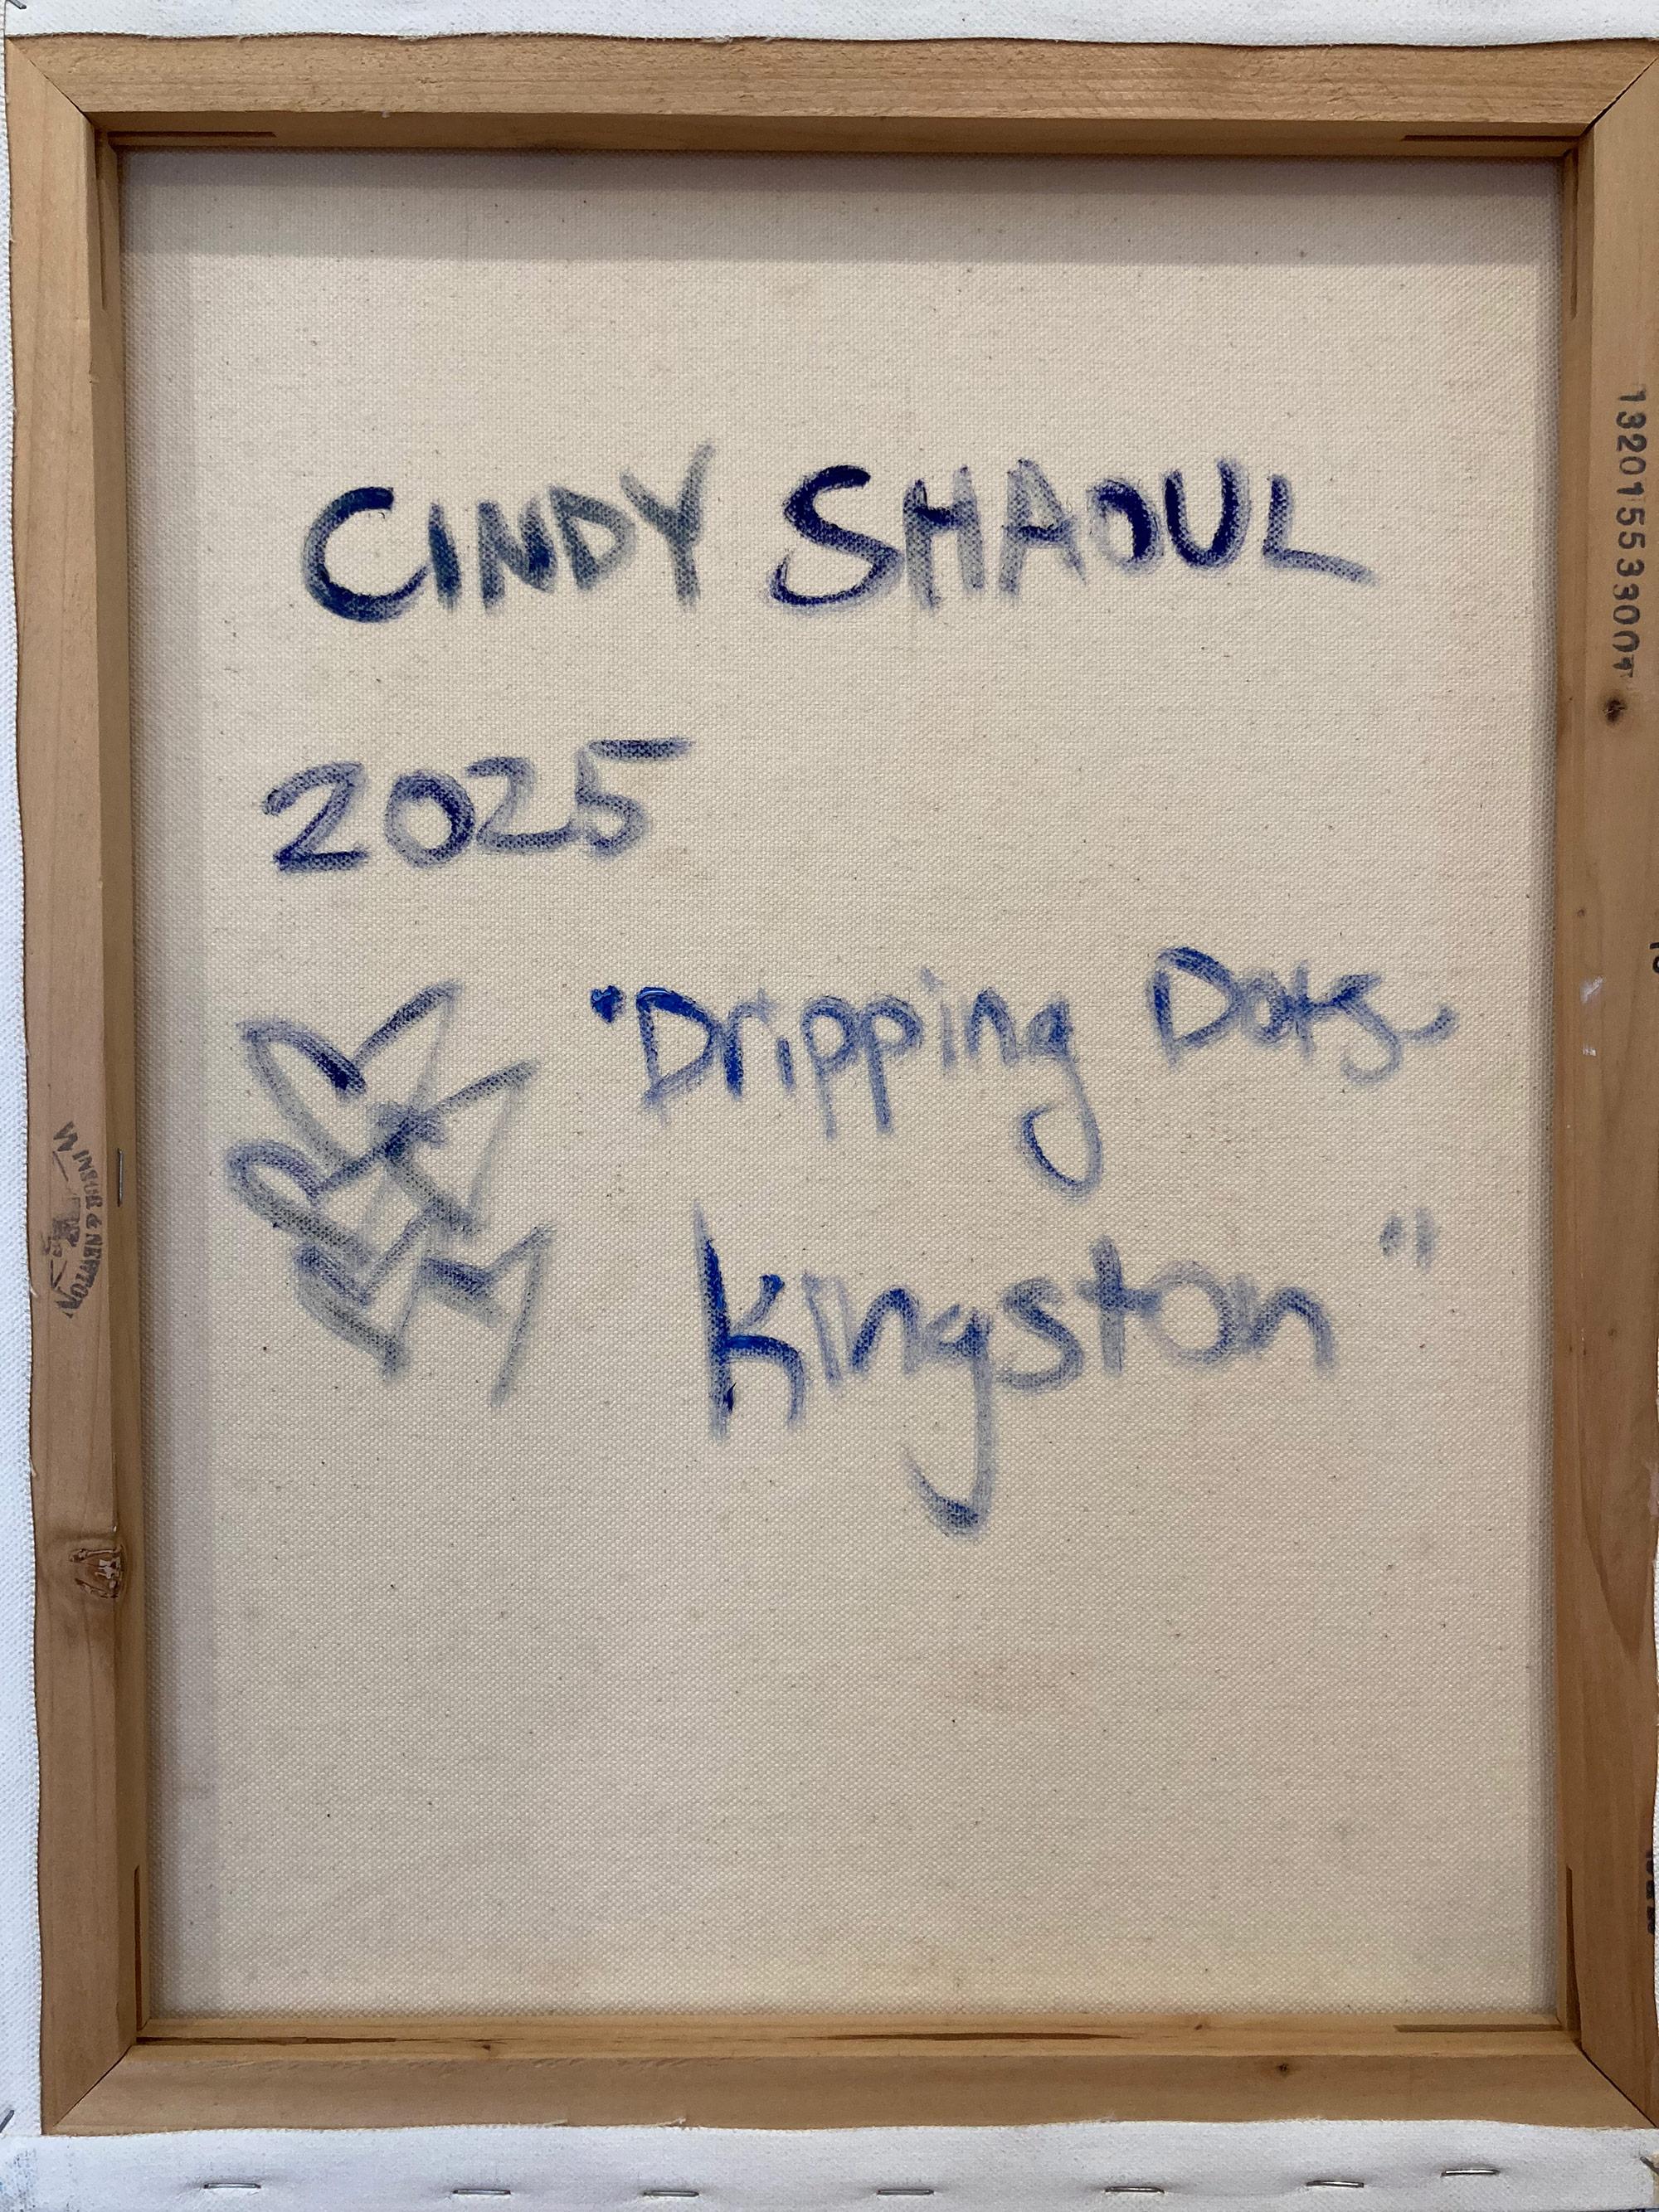 CINDY SHAOUL
2025
"Dripping Dots,
Kingston"
WINSOR & NEWTON